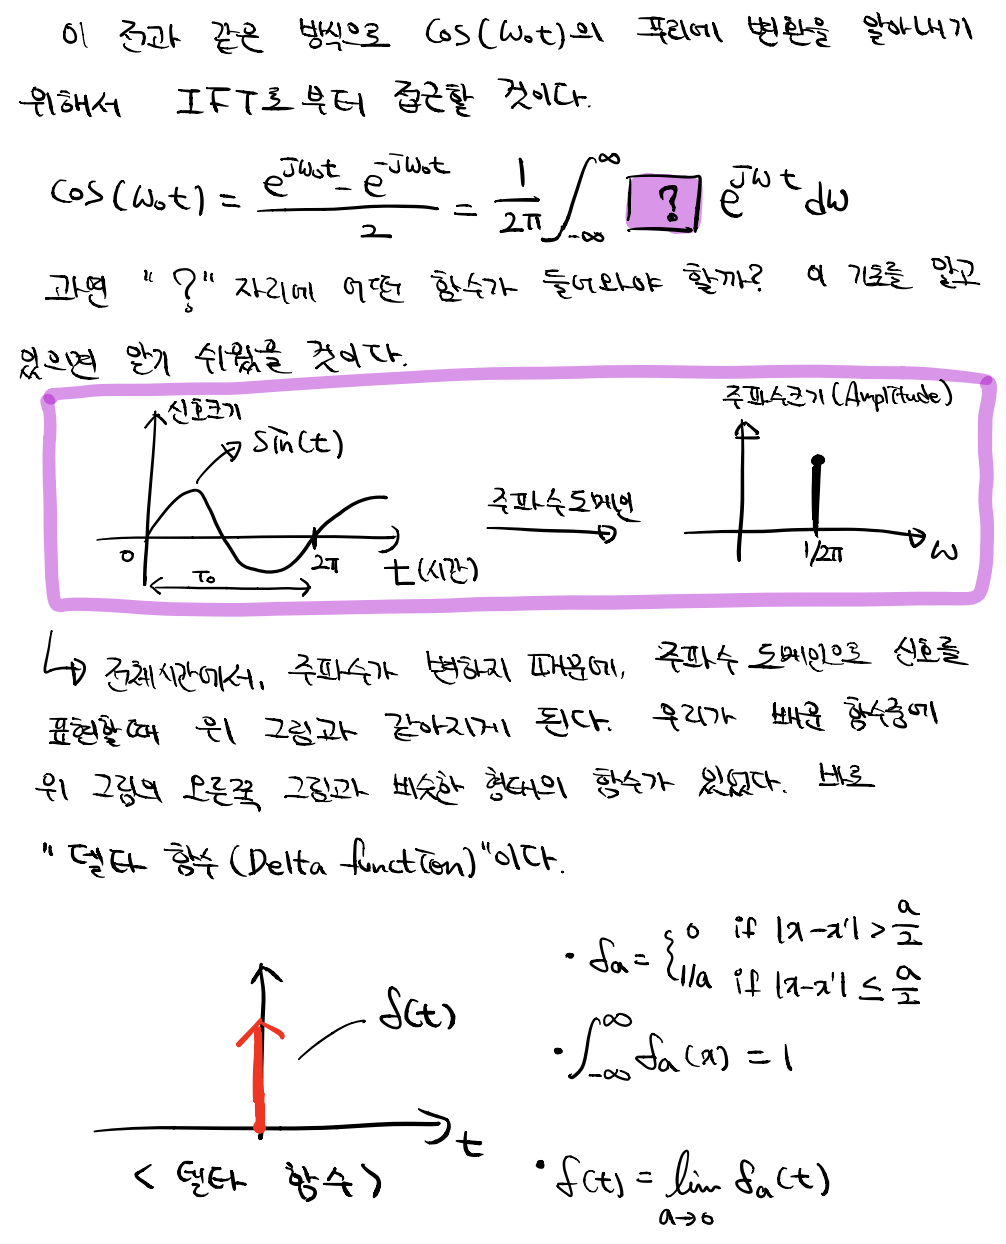 이 전과 같은 방식으로 cos(ω₀t)의 푸리에 변환을 알아내기
위해서 IFT로부터 접근할 것이다.
cos(ω₀t) = (e^{jω₀t} - e^{-jω₀t})/2 = 1/2π ∫_{-∞}^{∞} [?] e^{jωt} dω
과연 "?" 자리에 어떤 함수가 들어와야 할까? 이 기초를 알고
있으면 알기 쉬웠을 것이다.
신호크기
sin(t)
0
T₀
2π
t(시간)
주파수도메인
주파수크기(Amplitude)
1/2π
ω
↳ 전체시간에서, 주파수가 변하지 때문에, 주파수 도메인으로 신호를
표현할때 위 그림과 같아지게 된다. 우리가 배운 함수중에
위 그림의 오른쪽 그림과 비슷한 형태의 함수가 있었다. 바로
"델타 함수(Delta function)"이다.
δ(t)
t
< 델타 함수 >
· δa = { 0 if |x-x'| > a/2
1/a if |x-x'| ≤ a/2
· ∫_{-∞}^{∞} δa(x) = 1
· δ(t) = lim_{a→0} δa(t)